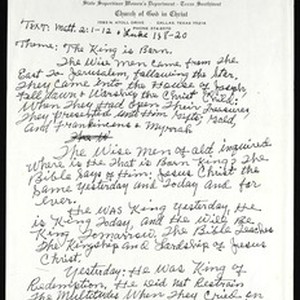 State Supervisor Women's Department - Texas Southwest
Church of God in Christ
DALLAS, TEXAS
PHONE
Text: Matt. 2:1-12 & Luke 1:8-20
Theme: The King is Born.
The Wise men came from the
East To Jerusalem, following the star,
They Came Into the House of Joseph,
fall down & Worship the Christ Child.
When They Had Open Their Treasures,
They presented unto Him Gifts, Gold,
and Frankincense & Myrrah
The W
The Wise Men of old enquired
Where is He That is Born King? The
Bible Says of Him: Jesus Christ the
Same Yesterday and Today and for
ever.
He was King Yesterday, He
is King Today, and He will Be
King Tomarrow. The Bible Teaches
The Kingship and Lordship of Jesus
Christ.
Yesterday: He was King of
Redemption, He did not Restrain
The Multitudes When They Cried, on